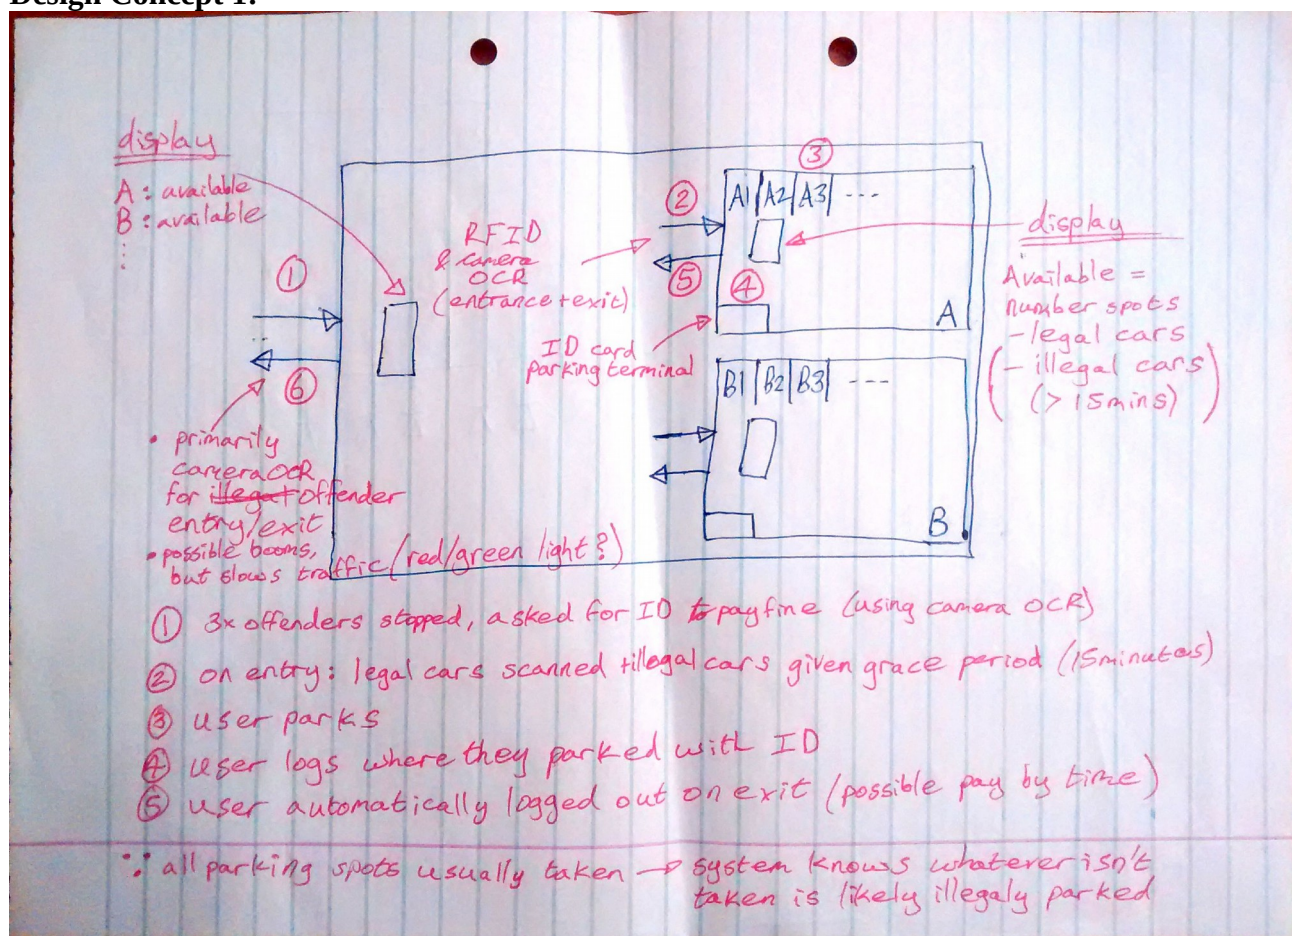 Design Concept 1:
display
A : available
B : available
⋮
①
⑥
• primarily
camera OCR
for illegal offender
entry/exit
• possible booms,
but slows traffic (red/green light?)
RFID
& camera
OCR
(entrance + exit)
ID card
parking terminal
②
⑤
③
④
A1 A2 A3 ---
A
B1 B2 B3 ---
B
display
Available =
number spots
- legal cars
(- illegal cars
(> 15mins))
① 3x offenders stopped, asked for ID to pay fine (using camera OCR)
② on entry: legal cars scanned + illegal cars given grace period (15minutes)
③ user parks
④ user logs where they parked with ID
⑤ user automatically logged out on exit (possible pay by time)
∵ all parking spots usually taken → system knows whatever isn't
taken is likely illegaly parked